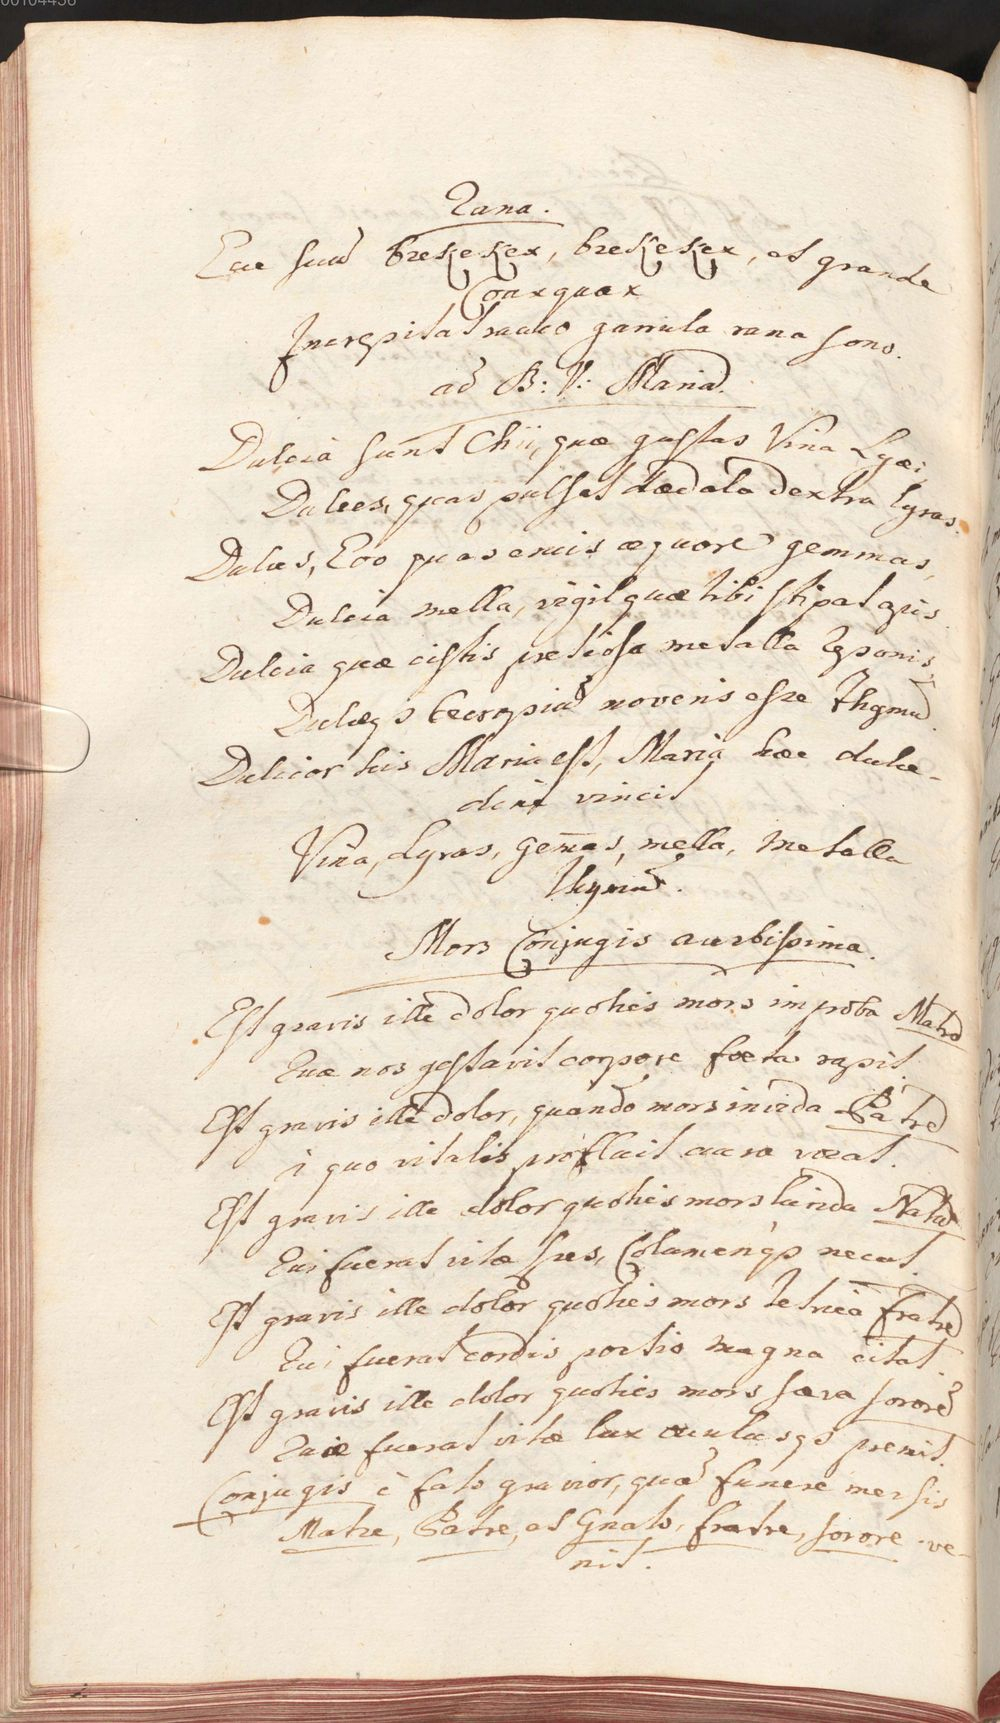 00104436
Rana.
Ecce suū brekekex, brekekex, et grande
Coaxquax
Increpitat rauco garrula rana sono.
ad B: V: Mariā.
Dulcia sunt Chii, quæ gustas Vina Lyæi,
Dulces, quas pulsat dædala dextra lyras.
Dulces, Eoo quas emis æquore gemmas,
Dulcia mella, vigil quæ tibi stipat apis.
Dulcia quæ cistis pretiosa metalla reponis,
Dulceqꝫ Cecropiū noveris esse thymū.
Dulcior his Maria est, Maria hæc dulce-
dine vincit
Vina, Lyras, gem̄as, mella, metalla
thymū.
Mors Conjugis acerbissima.
Est gravis ille dolor quoties mors improba Matrē
Quæ nos gestavit corpore fœta rapit.
Est gravis ille dolor, quando mors invida Patrē
à quo vitalis profluit aura vocat.
Est gravis ille dolor quoties mors lurida Natū
Qui fuerat vitæ spes, Columenqꝫ necat.
Est gravis ille dolor quoties mors tetrica fratrē
Qui fuerat cordis portio magna citat.
Est gravis ille dolor quoties mors sæva sororē
Quæ fuerat vitæ lux oculusqꝫ premit.
Conjugis è fato gravior, quā funere mersis
Matre, Patre, et Gnato, fratre, sorore ve-
nit.